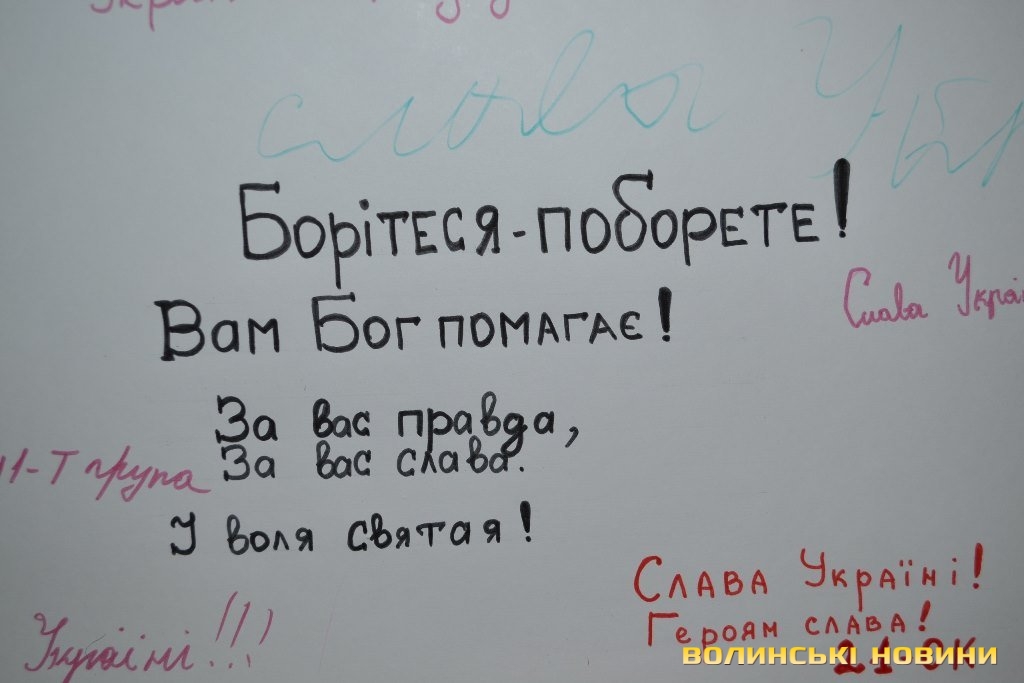 слава Ук
Борітеся - поборете!
Вам Бог помагає!
Слава Украї
За вас правда,
11-Т група
За вас слава.
І воля святая!
Слава Україні!
Героям слава!
Україні!!!
21 ОК
ВОЛИНСЬКІ НОВИНИ